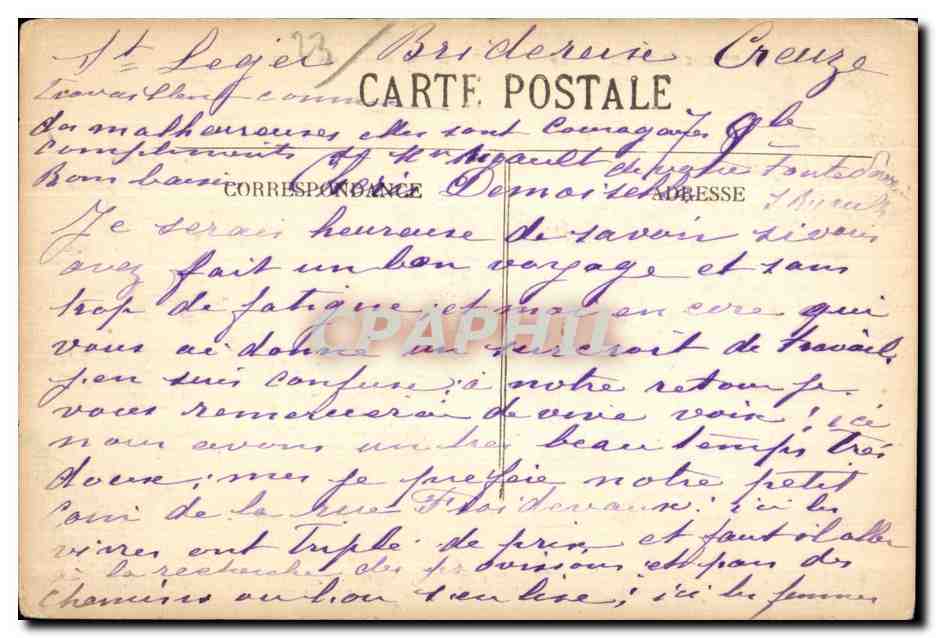 St Leger Bridereix Creuze
23
CARTE POSTALE
travaillent comme
des malheureuses elles sont courageuses
compliments
Bons baisers
CORRESPONDANCE
ADRESSE
Chère Demoiselle
Je serais heureuse de savoir si vous
avez fait un bon voyage et sans
trop de fatigue et moi en core qui
vous ai donné un surcroit de travail
j'en suis confuse; à notre retour je
vous remercierai de vive voix! ici
nous avons un trés beau temps trés
doux, mes je prefère notre petit
coin de la rue Froidevaux: ici les
vivres ont Triplé de prix et faut il aller
à la recherche des provisions et par des
chemins ou l'on s'enlise; ici les femmes
CPAPHIL